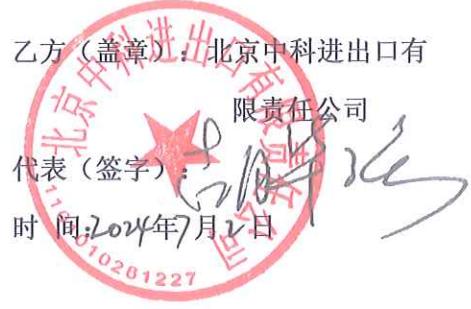 乙方（盖章）：北京中科进出口有
限责任公司
代表（签字）：
时 间:2024年7月2日
北京中科进出口有限责任公司